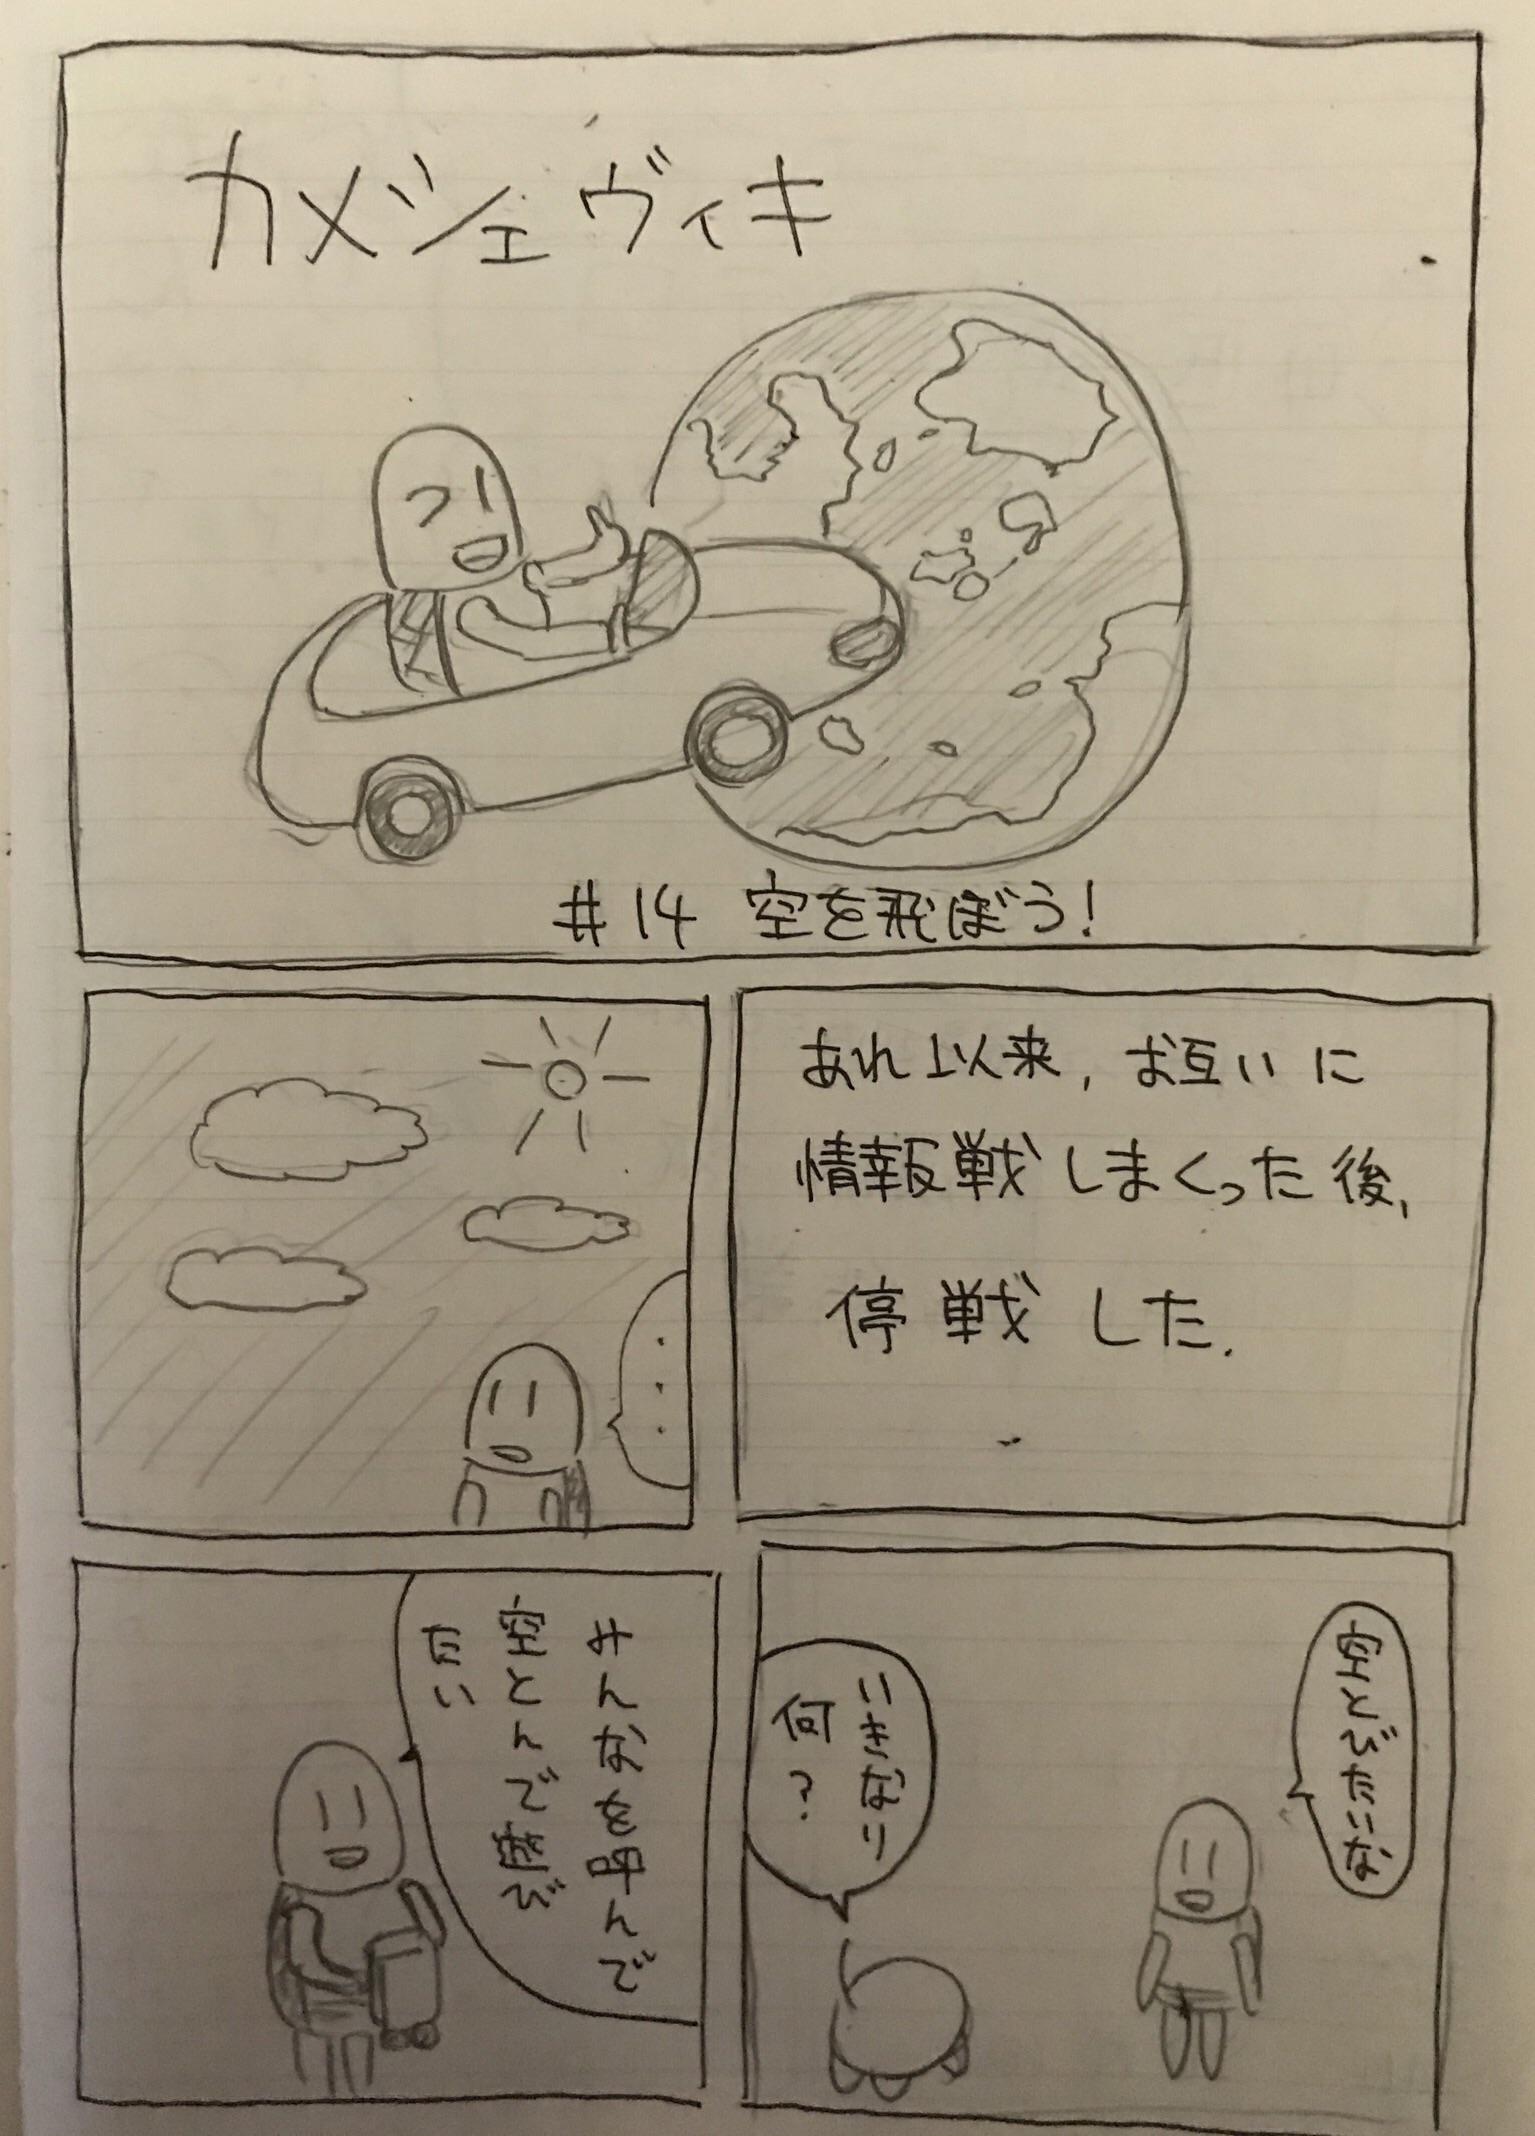 カメシェヴィキ
#14 空を飛ぼう!
あれ以来, お互いに
情報戦しまくった後,
停戦した.
・・・
空とびたいな
いきなり
何?
みんなを呼んで
空とんで遊び
たい